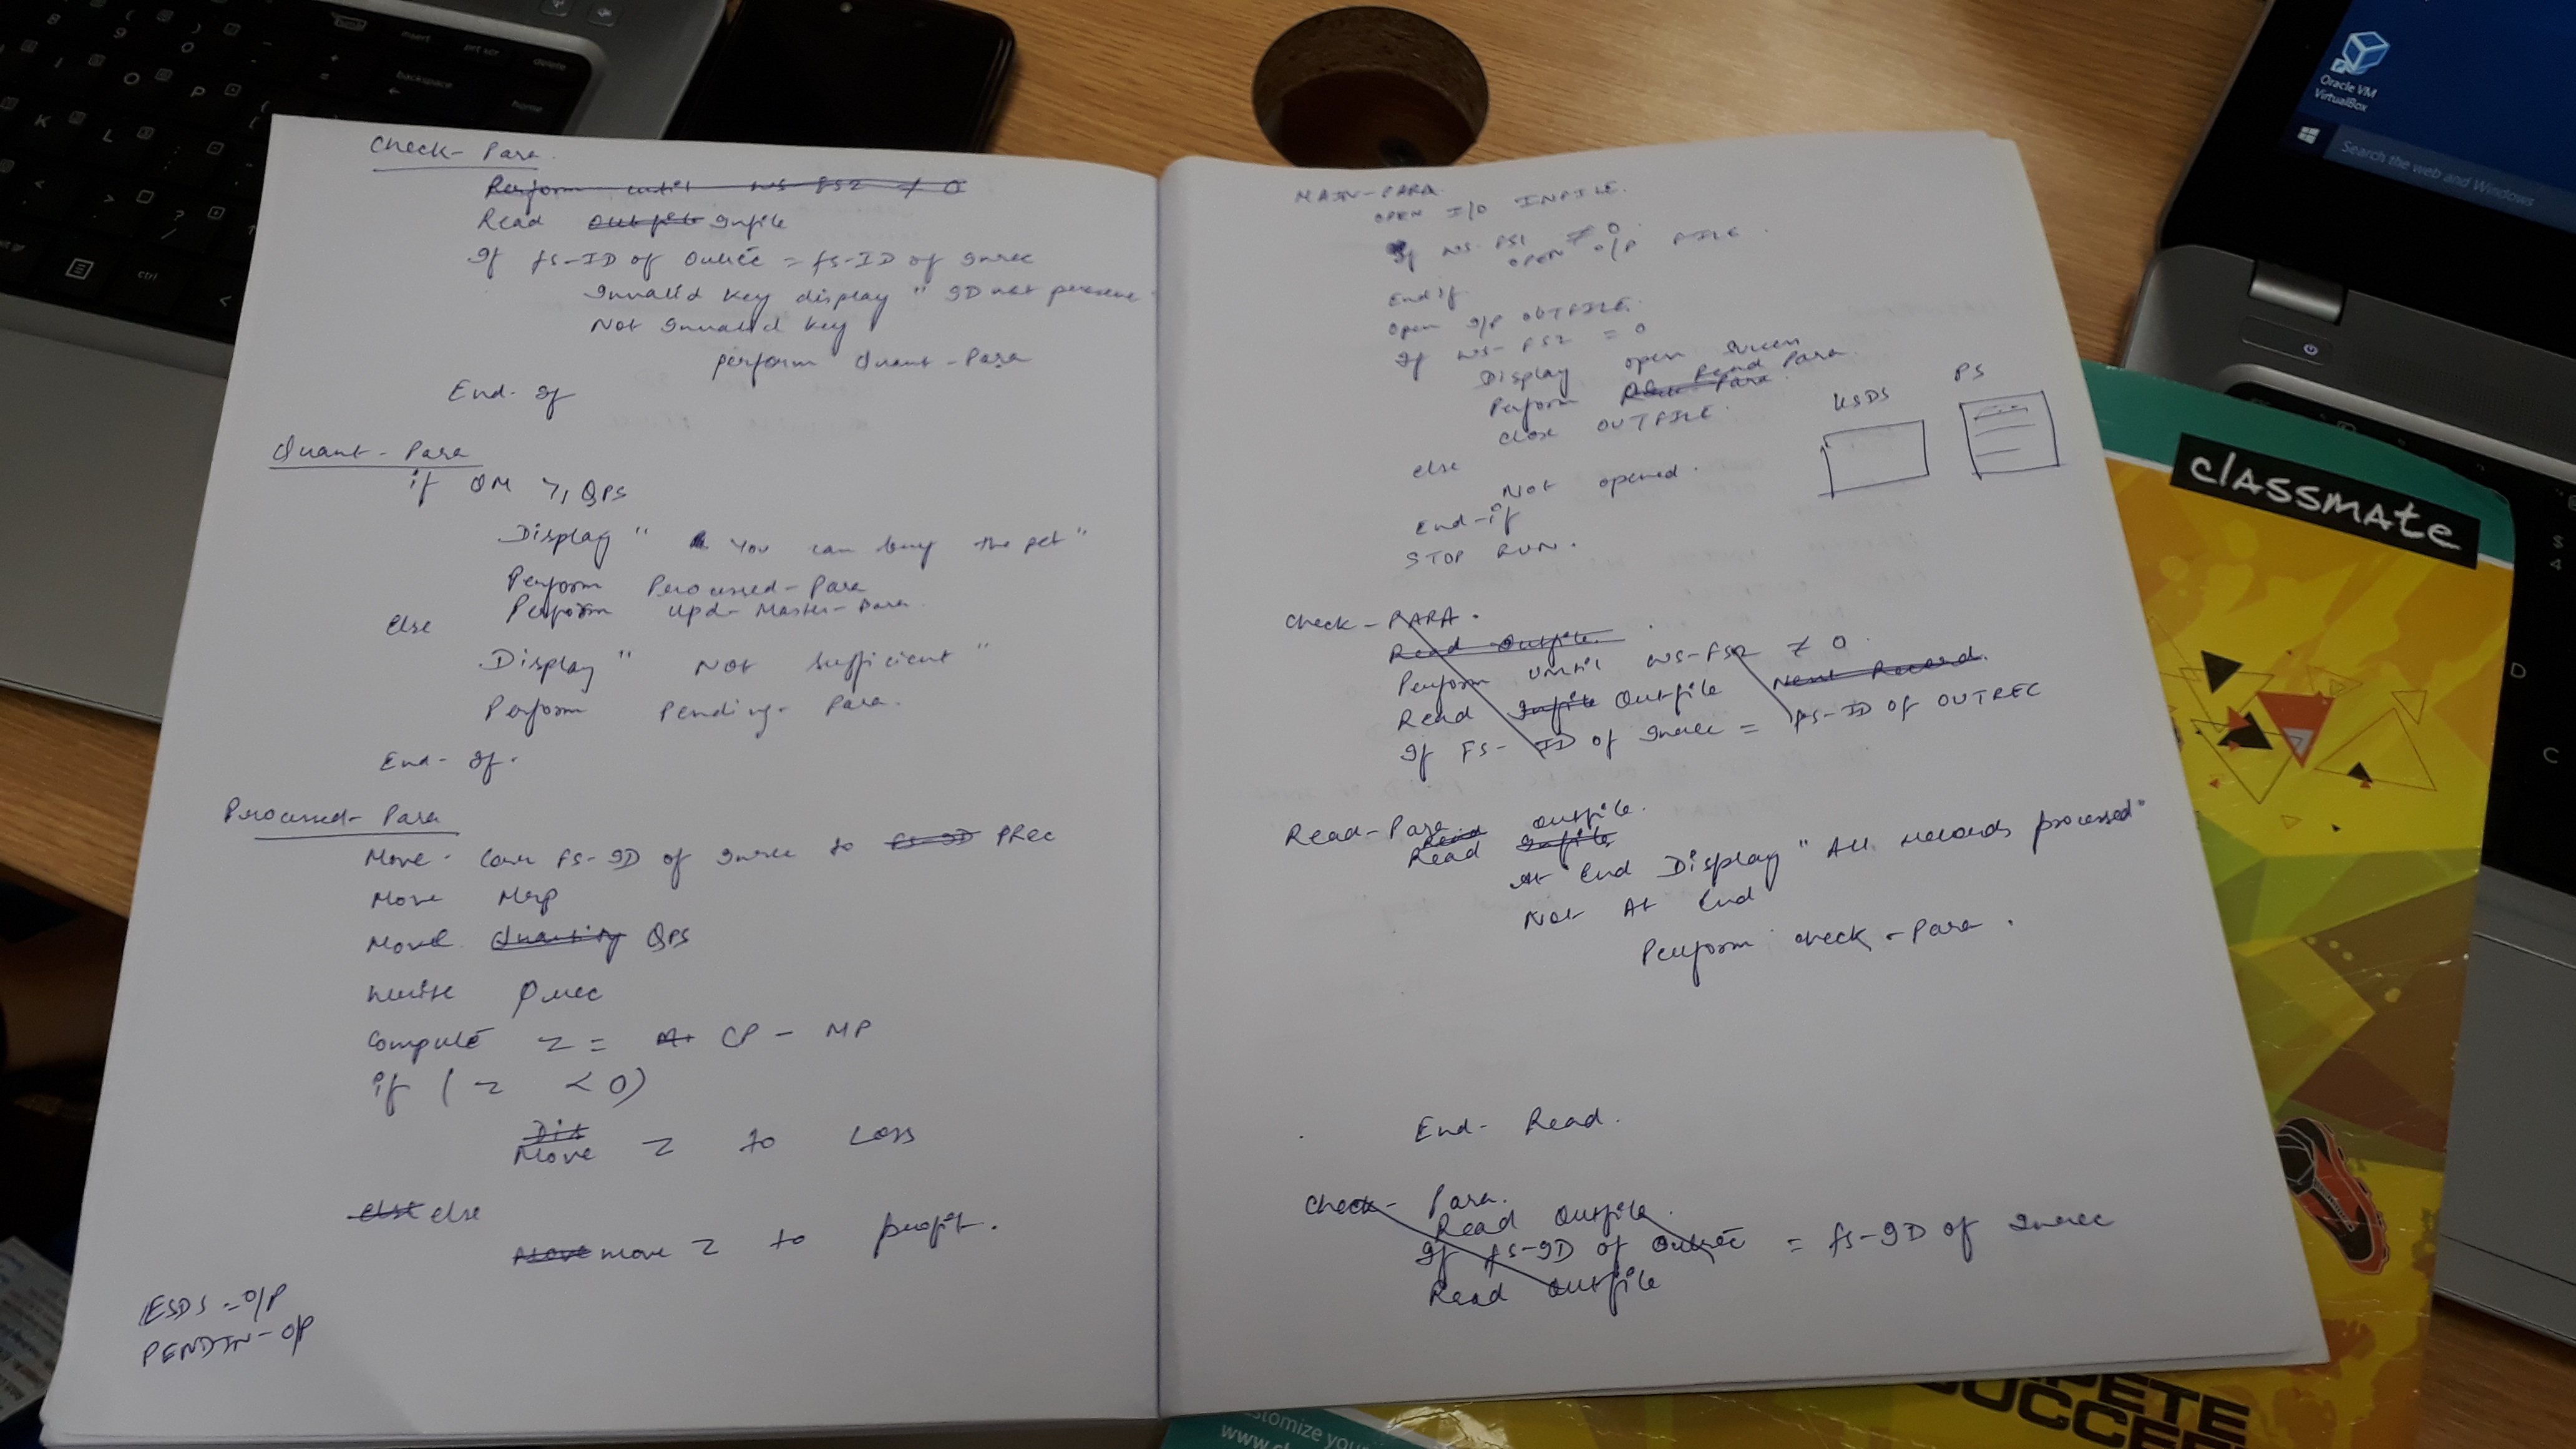 Check-Para.
Perform until ws-FS2 ≠ 0
Read Outfile Infile
If fs-ID of Outrec = fs-ID of Inrec
Invalid key display " ID not
Not Invalid key
perform Quant-Para
End-If
Quant-Para
if QM >, QPS
Display " You can buy the pet "
Perform Processed-Para
Perform Upd-Master-Para.
Else
Display " Not Sufficient "
Perform Pending-Para.
End-If.
Processed-Para
Move- Corr FS-ID of Inrec to FS-ID PRec
Move Mrp
Move Quantity QPS
Write Prec
Compute Z = M CP - MP
if ( Z < 0)
Dis
Move Z to Loss
else else
Move move Z to profit.
ESDS - O/P
PENDIN - O/P
MAIN-PARA.
OPEN I/O INFILE.
If WS-FS1 ≠ 0.
OPEN O/P FILE.
End if.
Open I/P OUTFILE.
If WS-FS2 = 0
Display open
Perform Read Para.
Para
Close OUTFILE.
else
Not opened.
End-if
STOP RUN.
KSDS
PS
Check-PARA.
Read Outfile.
Perform Until WS-FS2 ≠ 0.
Read Infile Outfile Next Record.
If FS-ID of Inrec = FS-ID of OUTREC
Read-Para.
Read outfile.
Read Infile
At End Display " All records processed"
Not At End
Perform check-Para.
End-Read.
Check-Para.
Read Outfile.
If fs-ID of Outrec = fs-ID of Inrec
Read Outfile
classmate
Oracle VM
VirtualBox
Search the web and Windows
insert
prt scr
delete
backspace
home
ctrl